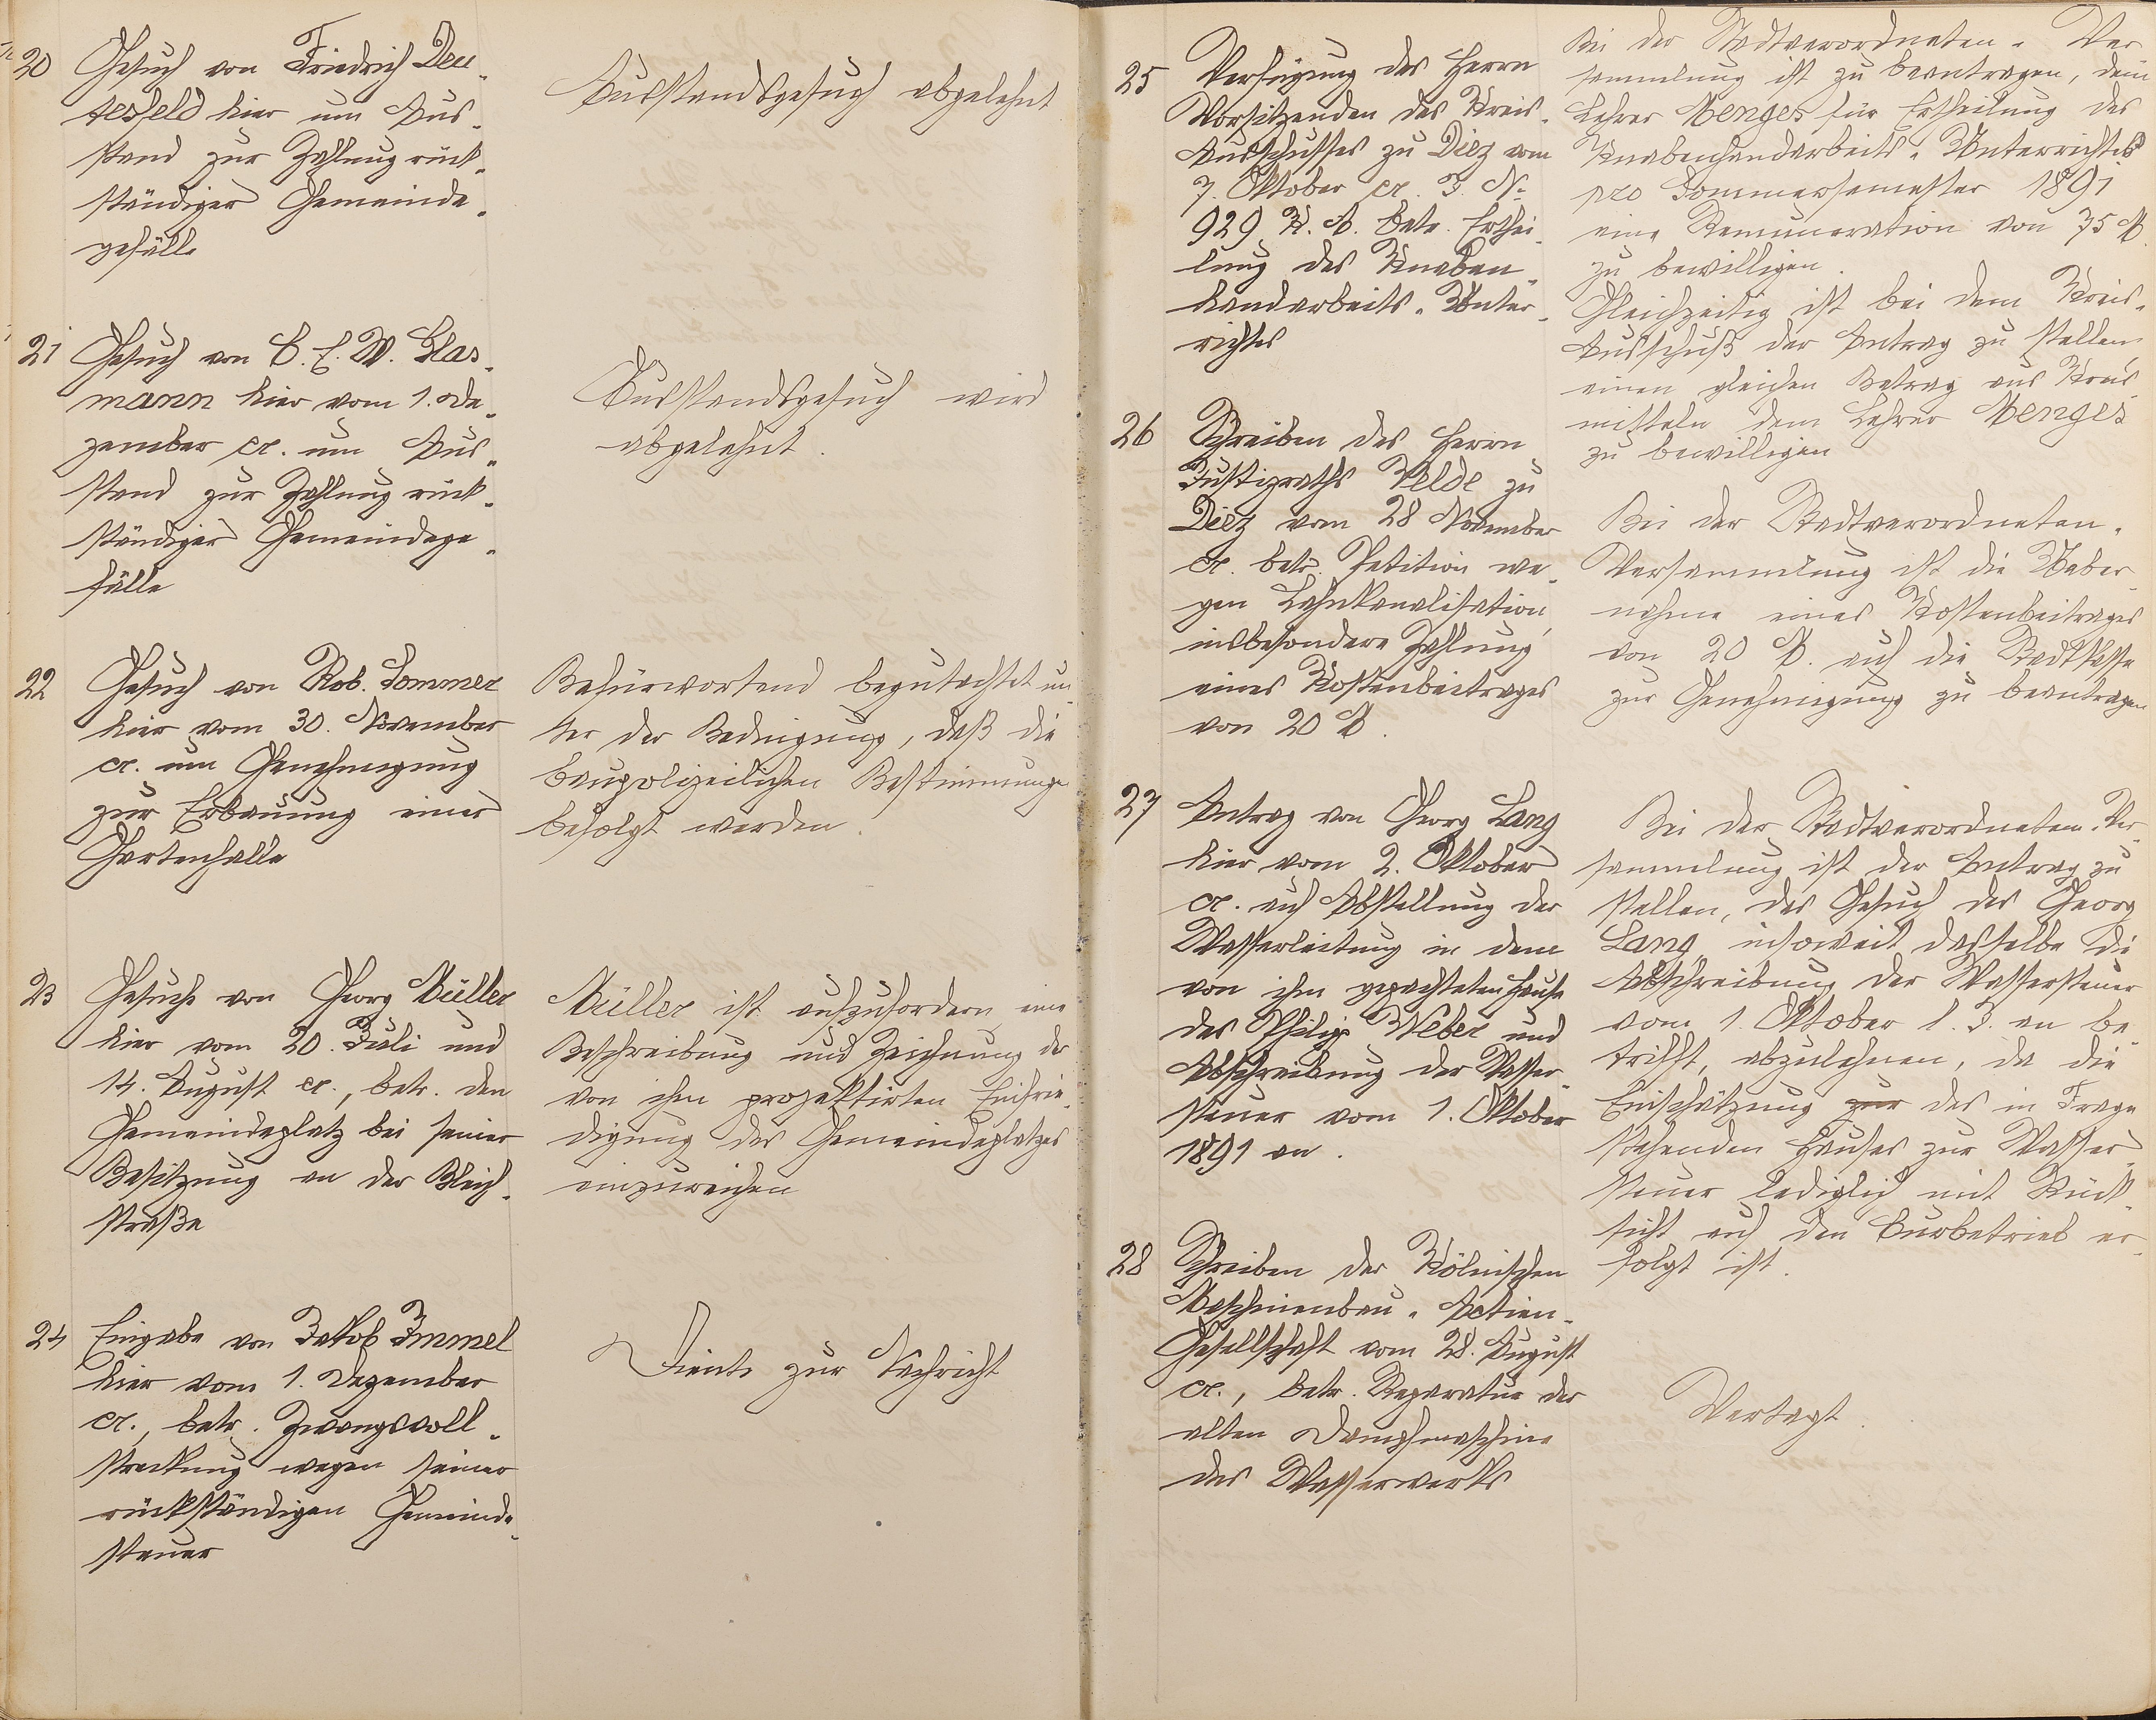 20
Gesuch von Friedrich Deu-
tesfeld hier um Aus-
stand zur Zahlung rück-
ständiger Gemeinde-
gefälle
Ausstandsgesuch abgelehnt
21
Gesuch von C. E. W. Glas-
mann hier vom 1. De-
zember cr. um Aus-
stand zur Zahlung rück-
ständiger Gemeindege-
fälle
Ausstandsgesuch wird
abgelehnt.
22
Gesuch von Rob. Sommer
hier vom 30. November
cr. um Genehmigung
zur Erbauung einer
Gartenhalle
Befürwortend begutachtet un-
ter der Bedingung, daß die
baupolizeilichen Bestimmungen
befolgt werden.
23
Gesuche von Georg Müller
hier vom 20. Juli und
14. August cr., betr. den
Gemeindeplatz bei seiner
Besitzung an der Bleich-
straße
Müller ist aufzufordern eine
Beschreibung und Zeichnung der
von ihm projektirten Einfrie-
digung des Gemeindeplatzes
einzureichen
24
Eingabe von Jakob Immel
hier vom 1. Dezember
cr., betr. Zwangsvoll-
streckung wegen seiner
rückständigen Gemeinde-
steuer
Dient zur Nachricht
25
Verfügung des Herrn
Vorsitzenden des Kreis-
Ausschusses zu Diez vom
7. Oktober cr. J. No
929 K. A. betr. Erthei-
lung des Knaben-
handarbeits-Unter-
richtes
Bei der Stadtverordneten-Ver-
sammlung ist zu beantragen, dem
Lehrer Menges für Ertheilung des
Knabenhandarbeits-Unterrichtes
pro Sommersemester 1891
eine Remuneration von 75 M.
zu bewilligen.
Gleichzeitig ist bei dem Kreis-
Ausschuß der Antrag zu stellen
einen gleichen Betrag aus Kreis-
mitteln dem Lehrer Menges
zu bewilligen
26
Schreiben des Herrn
Justizraths Velde zu
Diez vom 28 November
cr. betr. Petition we-
gen Lahnkanalisation,
insbesondere Zahlung
eines Kostenbeitrages
von 20 M.
Bei der Stadtverordneten-
Versammlung ist die Ueber-
nahme eines Kostenbeitrages
von 20 M. auf die Stadtkasse
zur Genehmigung zu beantragen
27
Antrag von Georg Lang
hier vom 2. Oktober
cr. auf Abstellung der
Wasserleitung in dem
von ihm gepachteten Hause
des Philipp Weber und
Abschreibung der Wasser-
steuer vom 1. Oktober
1891 an.
Bei der Stadtverordneten-Ver-
sammlung ist der Antrag zu
stellen, das Gesuch des Georg
Lang, insoweit dasselbe die
Abschreibung der Wassersteuer
vom 1. Oktober l. J. an be-
trifft, abzulehnen, da die
Einschätzung zur des in Frage
stehenden Hauses zur Wasser-
steuer lediglich mit Rück-
sicht auf den Curbetrieb er-
folgt ist.
28
Schreiben der Kölnischen
Maschinenbau-Actien-
Gesellschaft vom 28. August
cr., betr. Reparatur der
alten Dampfmaschine
des Wasserwerks
Vertagt.